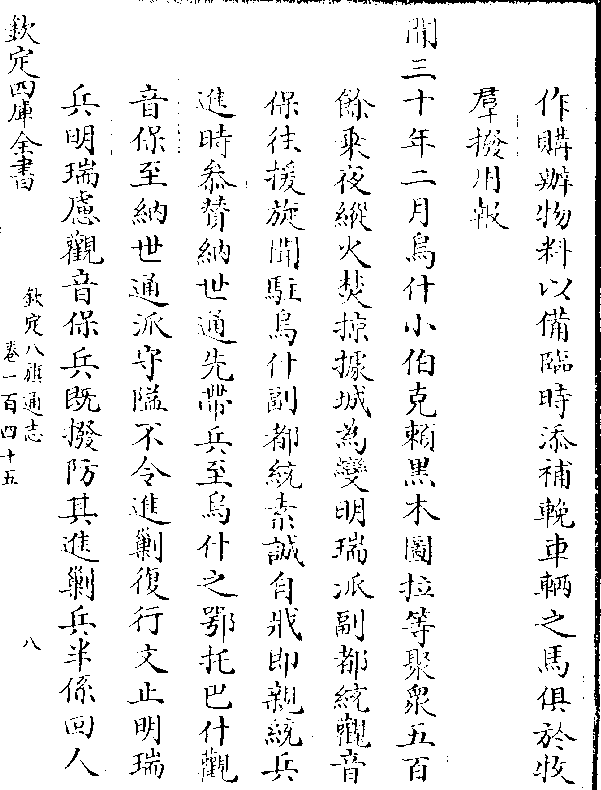 作購辦物料以備臨時添補輓車輛之馬俱於收
羣撥用報
聞三十年二月烏什小伯克賴黑木圖拉等聚衆五百
餘乘夜縱火焚掠據城為變明瑞派副都統觀音
保往援旋聞駐烏什副都統素誠自戕即親統兵
進時叅贊納世通先帶兵至烏什之鄂托巴什觀
音保至納世通派守隘不令進剿復行文止明瑞
兵明瑞慮觀音保兵既撥防其進剿兵半係回人
欽定四庫全書
欽定八旗通志
卷一百四十五
八